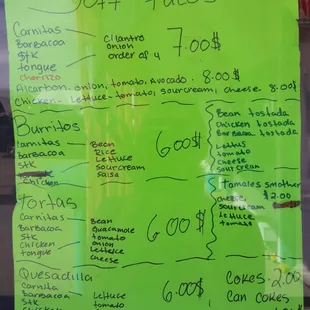 Soft Tacos
Carnitas
Barbacoa
Stk
tongue
Chorrizo
Cilantro
onion
order of 4
7.00$
Alcarbon, onion, tomato, Avocado. 8.00$
Chicken- Lettuce-tomato, sourcream, cheese 8.00$
Burritos
Carnitas
Barbacoa
Stk
Chicken
Bean
Rice
Lettuce
Sourcream
Salsa
6.00$
Bean tostada
Chicken tostada
Barbacoa tostada
Lettus
tomato
cheese
sourcream
Tortas
Carnitas
Barbacoa
Stk
Chicken
tongue
Bean
Guacamole
tomato
onion
Lettuce
Cheese
6.00$
Tamales smother
cheese $2.00
sourcream
Lettuce
tomato
Quesadilla
Carnita
Barbacoa
Stk
Chicken
Lettuce
tomato
6.00$
Cokes-2.00
Can cokes